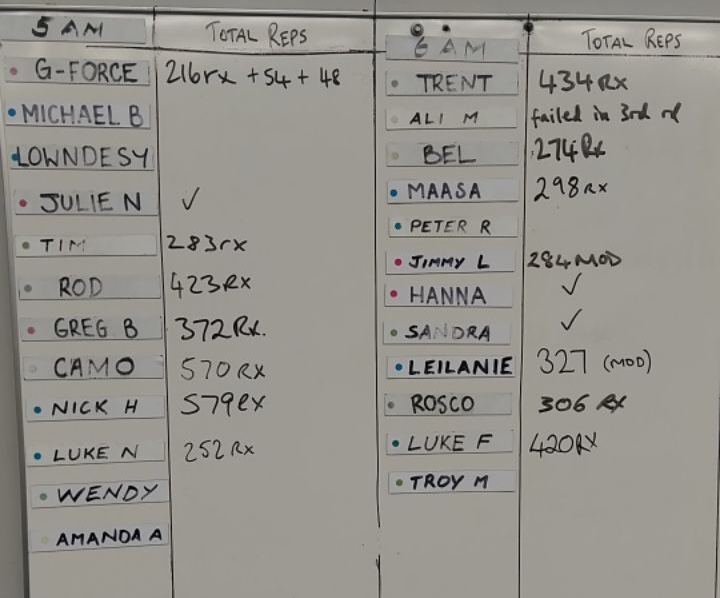 5 AM TOTAL REPS
G-FORCE 216rx + 54 + 48
MICHAEL B
LOWNDESY
JULIE N ✓
TIM 283rx
ROD 423RX
GREG B 372RX.
CAMO 570 RX
NICK H 579RX
LUKE N 252 RX
WENDY
AMANDA A
6 AM TOTAL REPS
TRENT 434RX
ALI M failed in 3rd rd
BEL 274RX
MAASA 298RX
PETER R
JIMMY L 284MOD
HANNA ✓
SANDRA ✓
LEILANIE 327 (MOD)
ROSCO 306 RX
LUKE F 420RX
TROY M